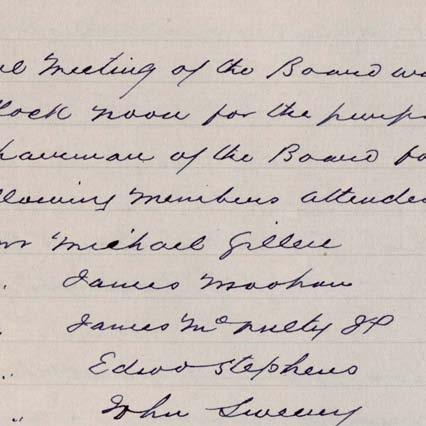 al Meeting of the Board wa
lock noon for the purp
hairman of the Board fo
llowing Members attende
Michael Gillen
" James Moohan
" James McNulty JP
" Edwd Stephens
" John Sweeny